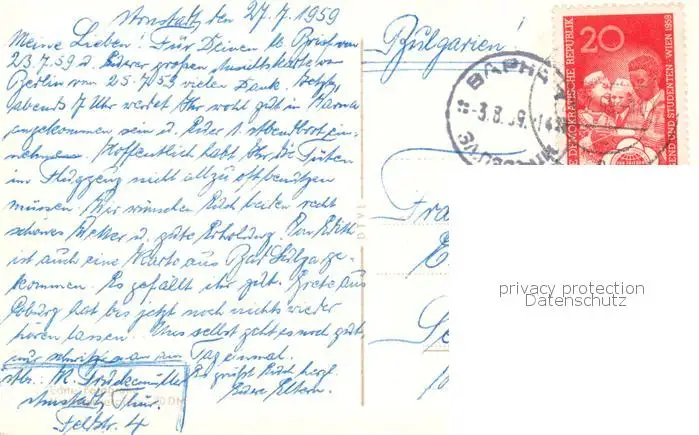 Arnstadt, den 27.7.1959
Meine Lieben! Für Deinen lb. Brief vom
23.7.59 u. Eure großen Ansichtskarte von
Berlin vom 25.7.59 vielen Dank. Heute
abends 7 Uhr werdet Ihr wohl gut in Warna
angekommen sein u. Euer 1. Abendbrot ein-
nehmen. Hoffentlich habt Ihr die Tüten
im Flugzeug nicht allzu oft benützen
müssen. Wir wünschen Euch beiden recht
schönes Wetter u. gute Erholung. Von Edith
ist auch eine Karte aus Bad Sulza ge-
kommen. Es gefällt ihr gut. Grete aus
Coburg hat bis jetzt noch nichts wieder
hören lassen. Uns selbst geht es noch gut,
nur schwitzen am Tag einmal.
Es grüßt Euch herzl.
Eure Eltern.
Abs.: M.
Arnstadt/Thür.
Feldstr. 4
Bulgarien!
ВАРНА
-3.8.59.-14
20
DEMOKRATISCHE REPUBLIK
JUGEND UND STUDENTEN · WIEN 1959
DTVL
Fra
privacy protection
Datenschutz